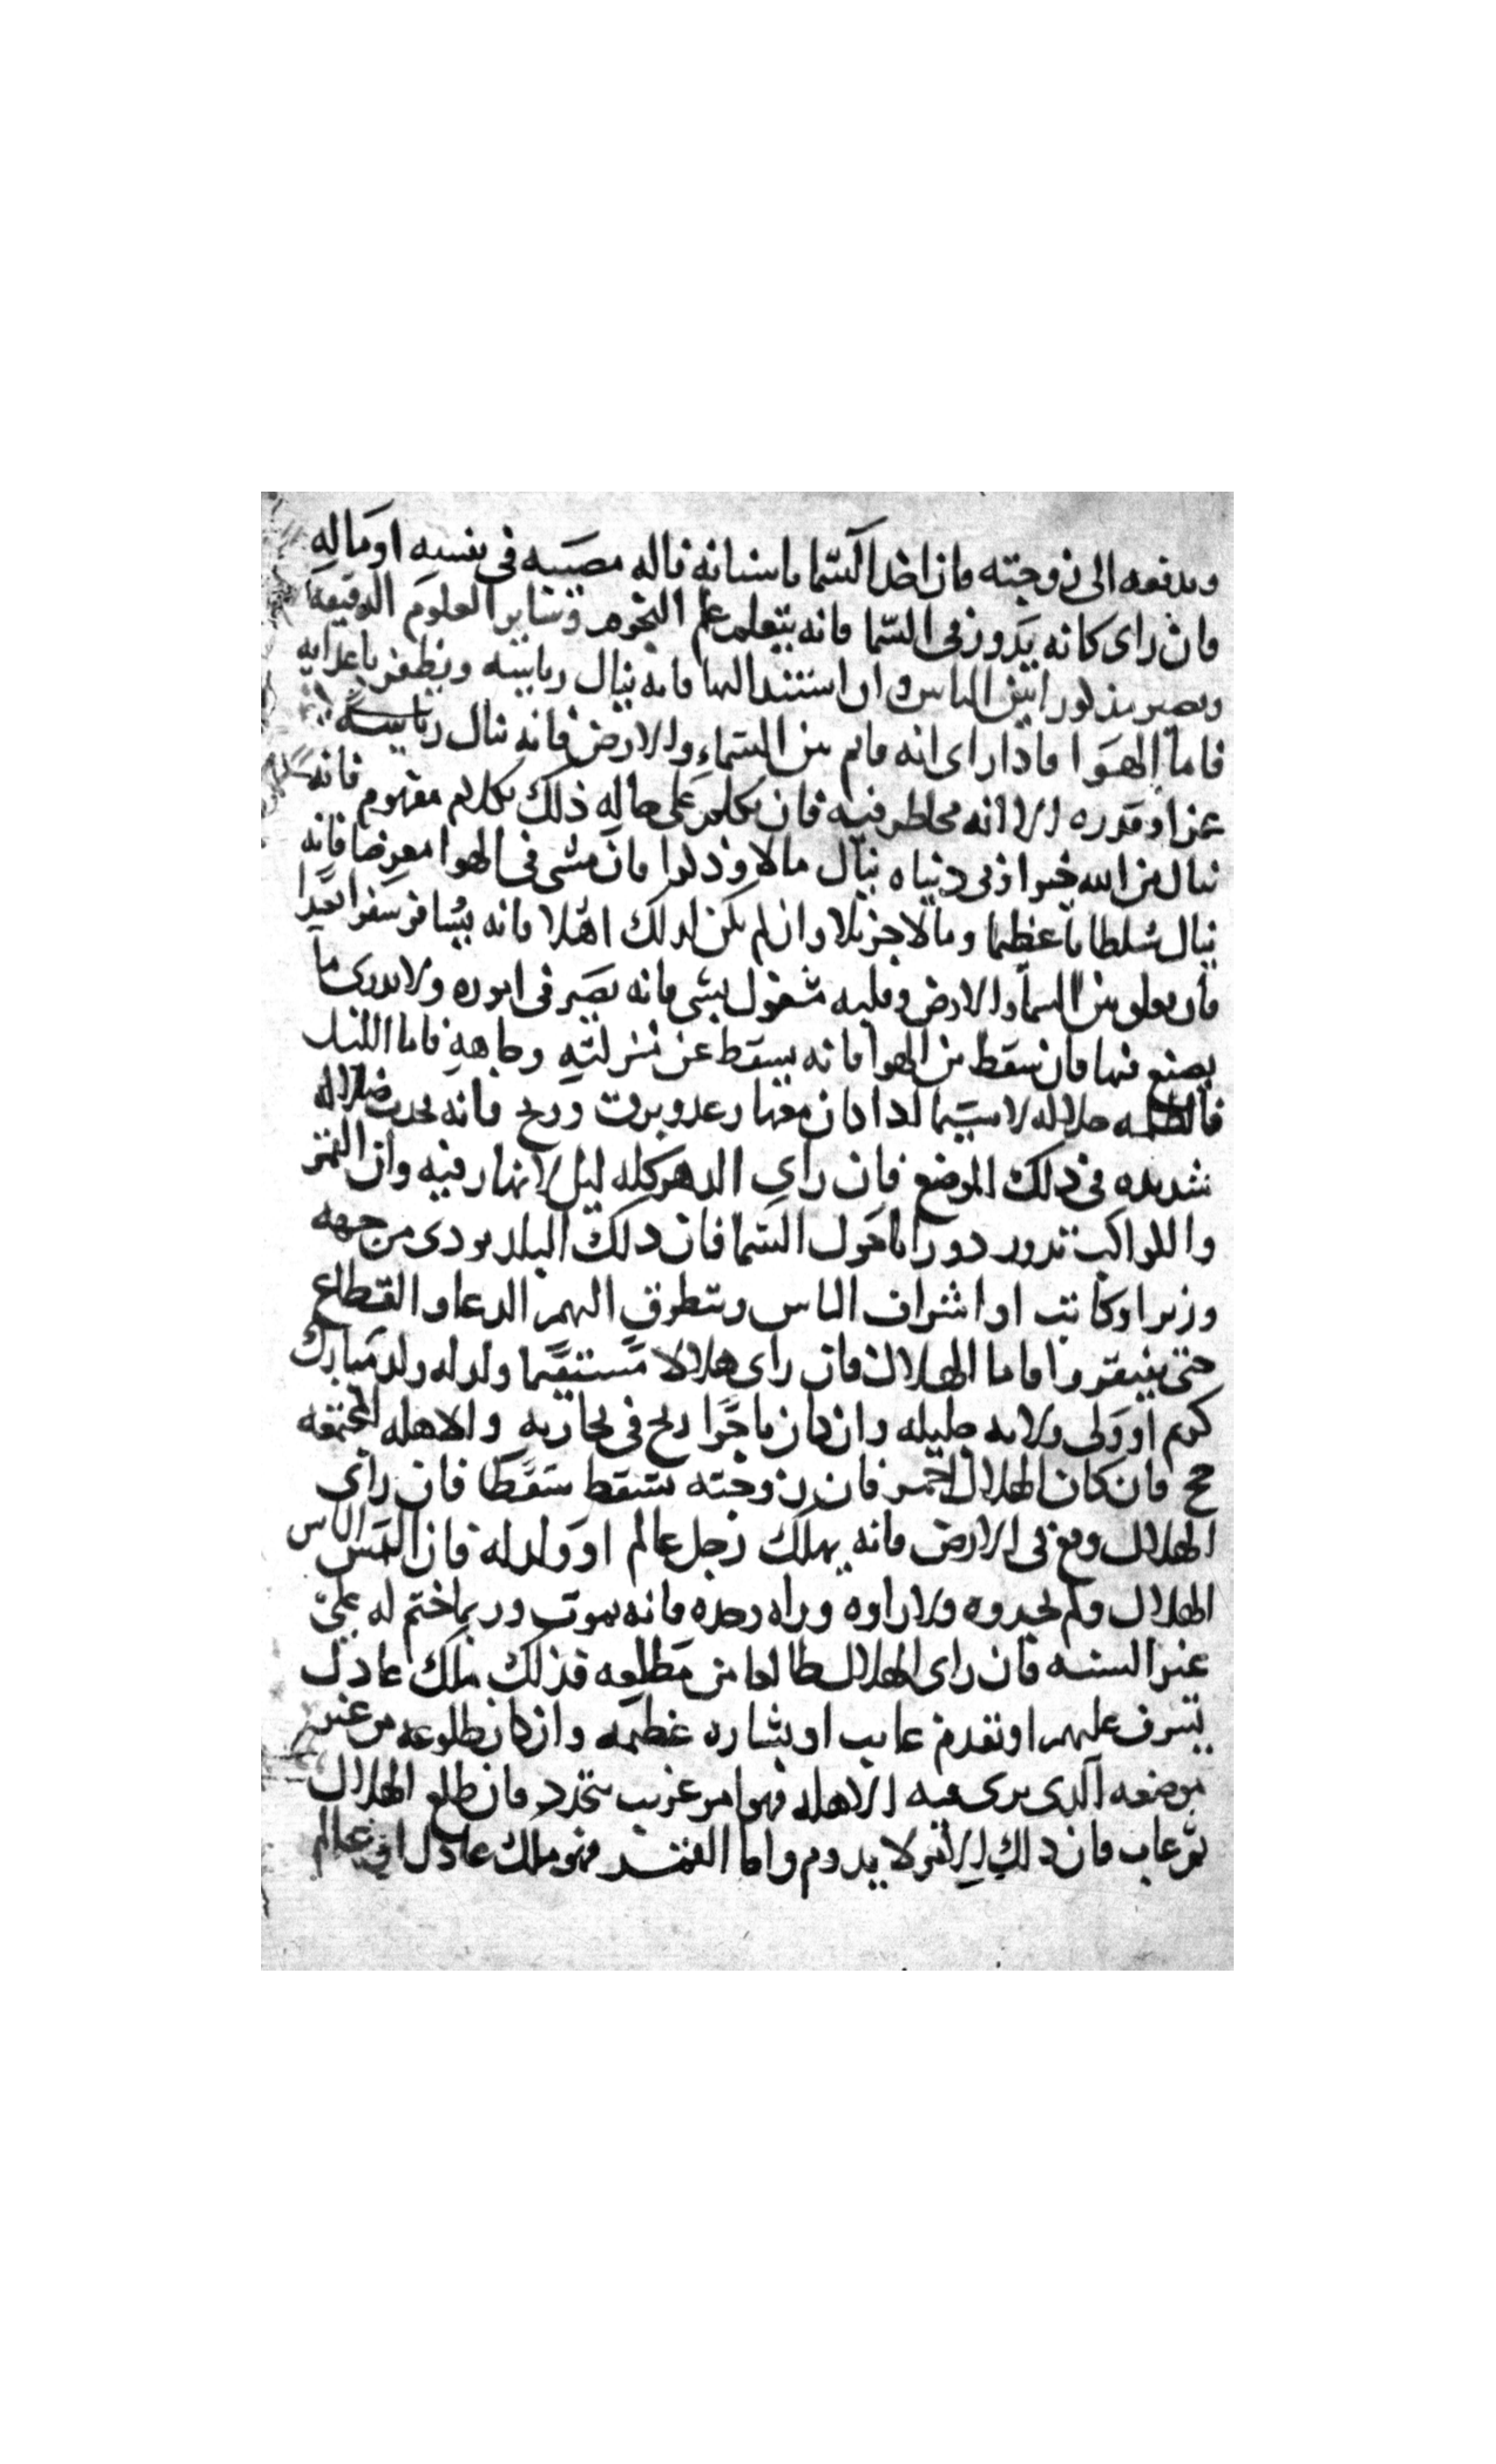 ويدفعه الى زوجته فان اخذ السما باسنانه ناله مصيبه في نفسه او ماله
فان راى كانه يدور في السما فانه يتعلم علم النجوم وساير العلوم الدقيقه
ويصير مذكورا بين الناس وان استند اليها فانه ينال رياسه ويظفر باعدايه
فاما الهوا فاذا راى انه قايم بين السماء والارض فانه ينال رياسة
عزا وقدره الا انه مخاطر فيه فان تكلم على حاله ذلك بكلام مفهوم فانه
ينال من الله خيرا وفي دنياه ينال مالا وذكرا فان مشى في الهوا معرضا فانه
ينال سلطانا عظيما ومالا جزيلا وان لم يكن لذلك اهلا فانه يسافر سفرا بعيدا
فان تعلق بين السما والارض وقلبه مشغول بشي فانه يتحير في اموره ولا يدرى ما
يصنع فيها فان سقط من الهوا فانه يسقط عن منزلته وجاهه فاما الليل
فالظلمه ضلاله لاسيما اذا كان معها رعد وبرق وريح فانه يحدث ضلاله
شديده في ذلك الموضع فان راى الدهر كله ليل لا نهار فيه وان القمر
والكواكب تدور دورانا حول السما فان ذلك البلد يودى من جهه
وزير او كاتب او اشراف الناس ويتطرق اليهم الدعا والقطاع
حتى يفتقروا فاما الهلال فان راى هلالا مستقيما ولد له ولد مبارك
كريم او ولى ولايه جليله وان كان تاجرا ربح في تجارته والاهله المجتمعه
حج فان كان الهلال احمر فان زوجته تسقط سقطا فان راى
الهلال وقع في الارض فانه يهلك رجل عالم او ولد له فان التمس الناس
الهلال ولم يجدوه ولا راوه وراه وحده فانه يموت وربما ختم له على
غير السنه فان راى الهلال طالعا من مطلعه فذلك ملك عادل
يشرف عليهم او تقدم غايب او بشاره عظيمه وان كان طلوعه من غير
موضعه الذى يرى فيه الاهله فهو امر غريب يتجدد فان طلع الهلال
ثم غاب فان ذلك الامر لا يدوم واما القمر فهو ملك عادل او عالم